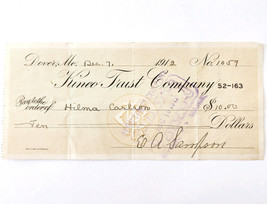 Dover, Me. Dec. 7, 1912 No. 1059
Kineo Trust Company 52-163
Pay to the order of Hilma Carlson $10.00
Ten Dollars
E A Sampson